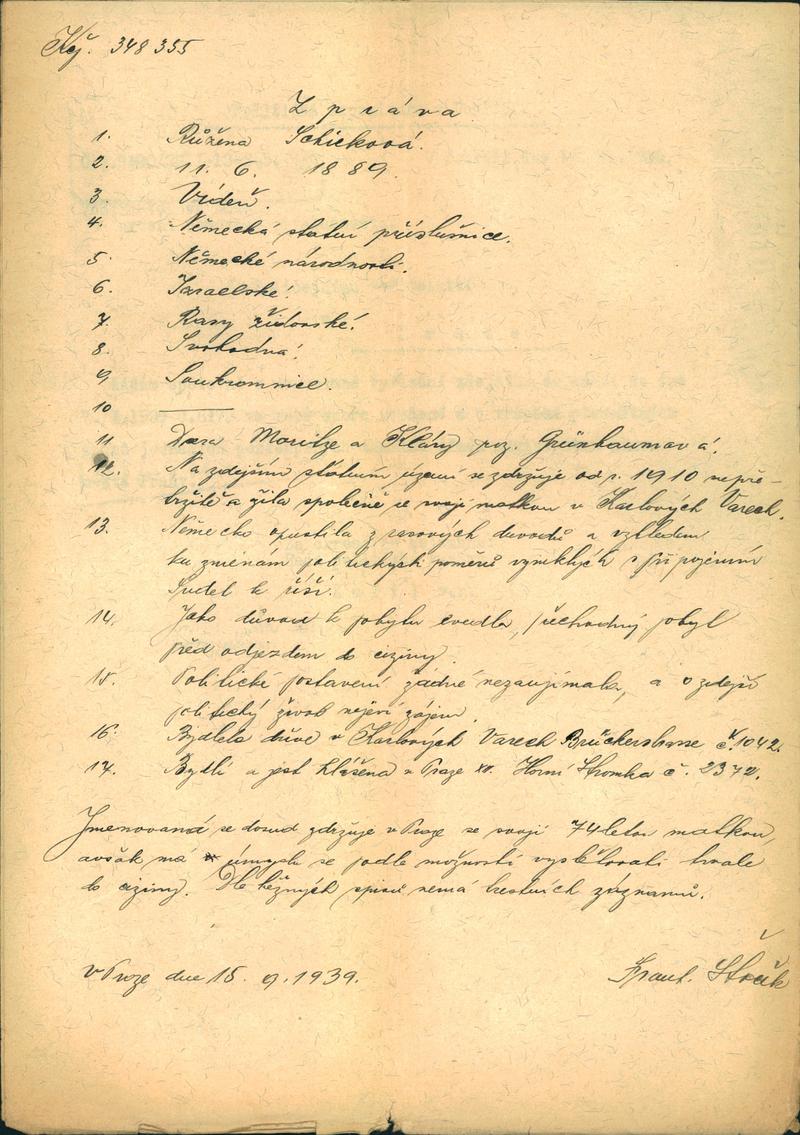 Kčj. 348 355
Zpráva
1. Růžena Schicková.
2. 11. 6. 1889.
3. Vídeň.
4. Německá státní příslušnice.
5. Německé národnosti.
6. Israelské.
7. Rasy židovské.
8. Svobodná.
9. Soukromnice.
10 ———
11 Dcera Moritze a Kláry roz. Grünbaumová.
12. Na zdejším státním území se zdržuje od r. 1910 nepře-
tržitě a žila společně se svojí matkou v Karlových Varech.
13. Německo opustila z rasových důvodů a vzhledem
ku změnám politických poměrů vzniklých s připojením
Sudet k říši.
14. Jako důvod k pobytu uvedla, přechodný pobyt
před odjezdem do ciziny.
15. Politické postavení žádné nezaujímala, a o zdejší
politický život nejeví zájem.
16. Bydlela dříve v Karlových Varech Brückerstrasse č. 1042.
17. Bydlí a jest hlášena v Praze XII. Horní Stromka č. 2372.
Jmenovaná se dosud zdržuje v Praze se svojí 74letou matkou,
avšak má úmysl se podle možnosti vystěhovati trvale
do ciziny. Dle běžných spisů nemá trestních záznamů.
v Praze dne 15. 9. 1939.
Frant.